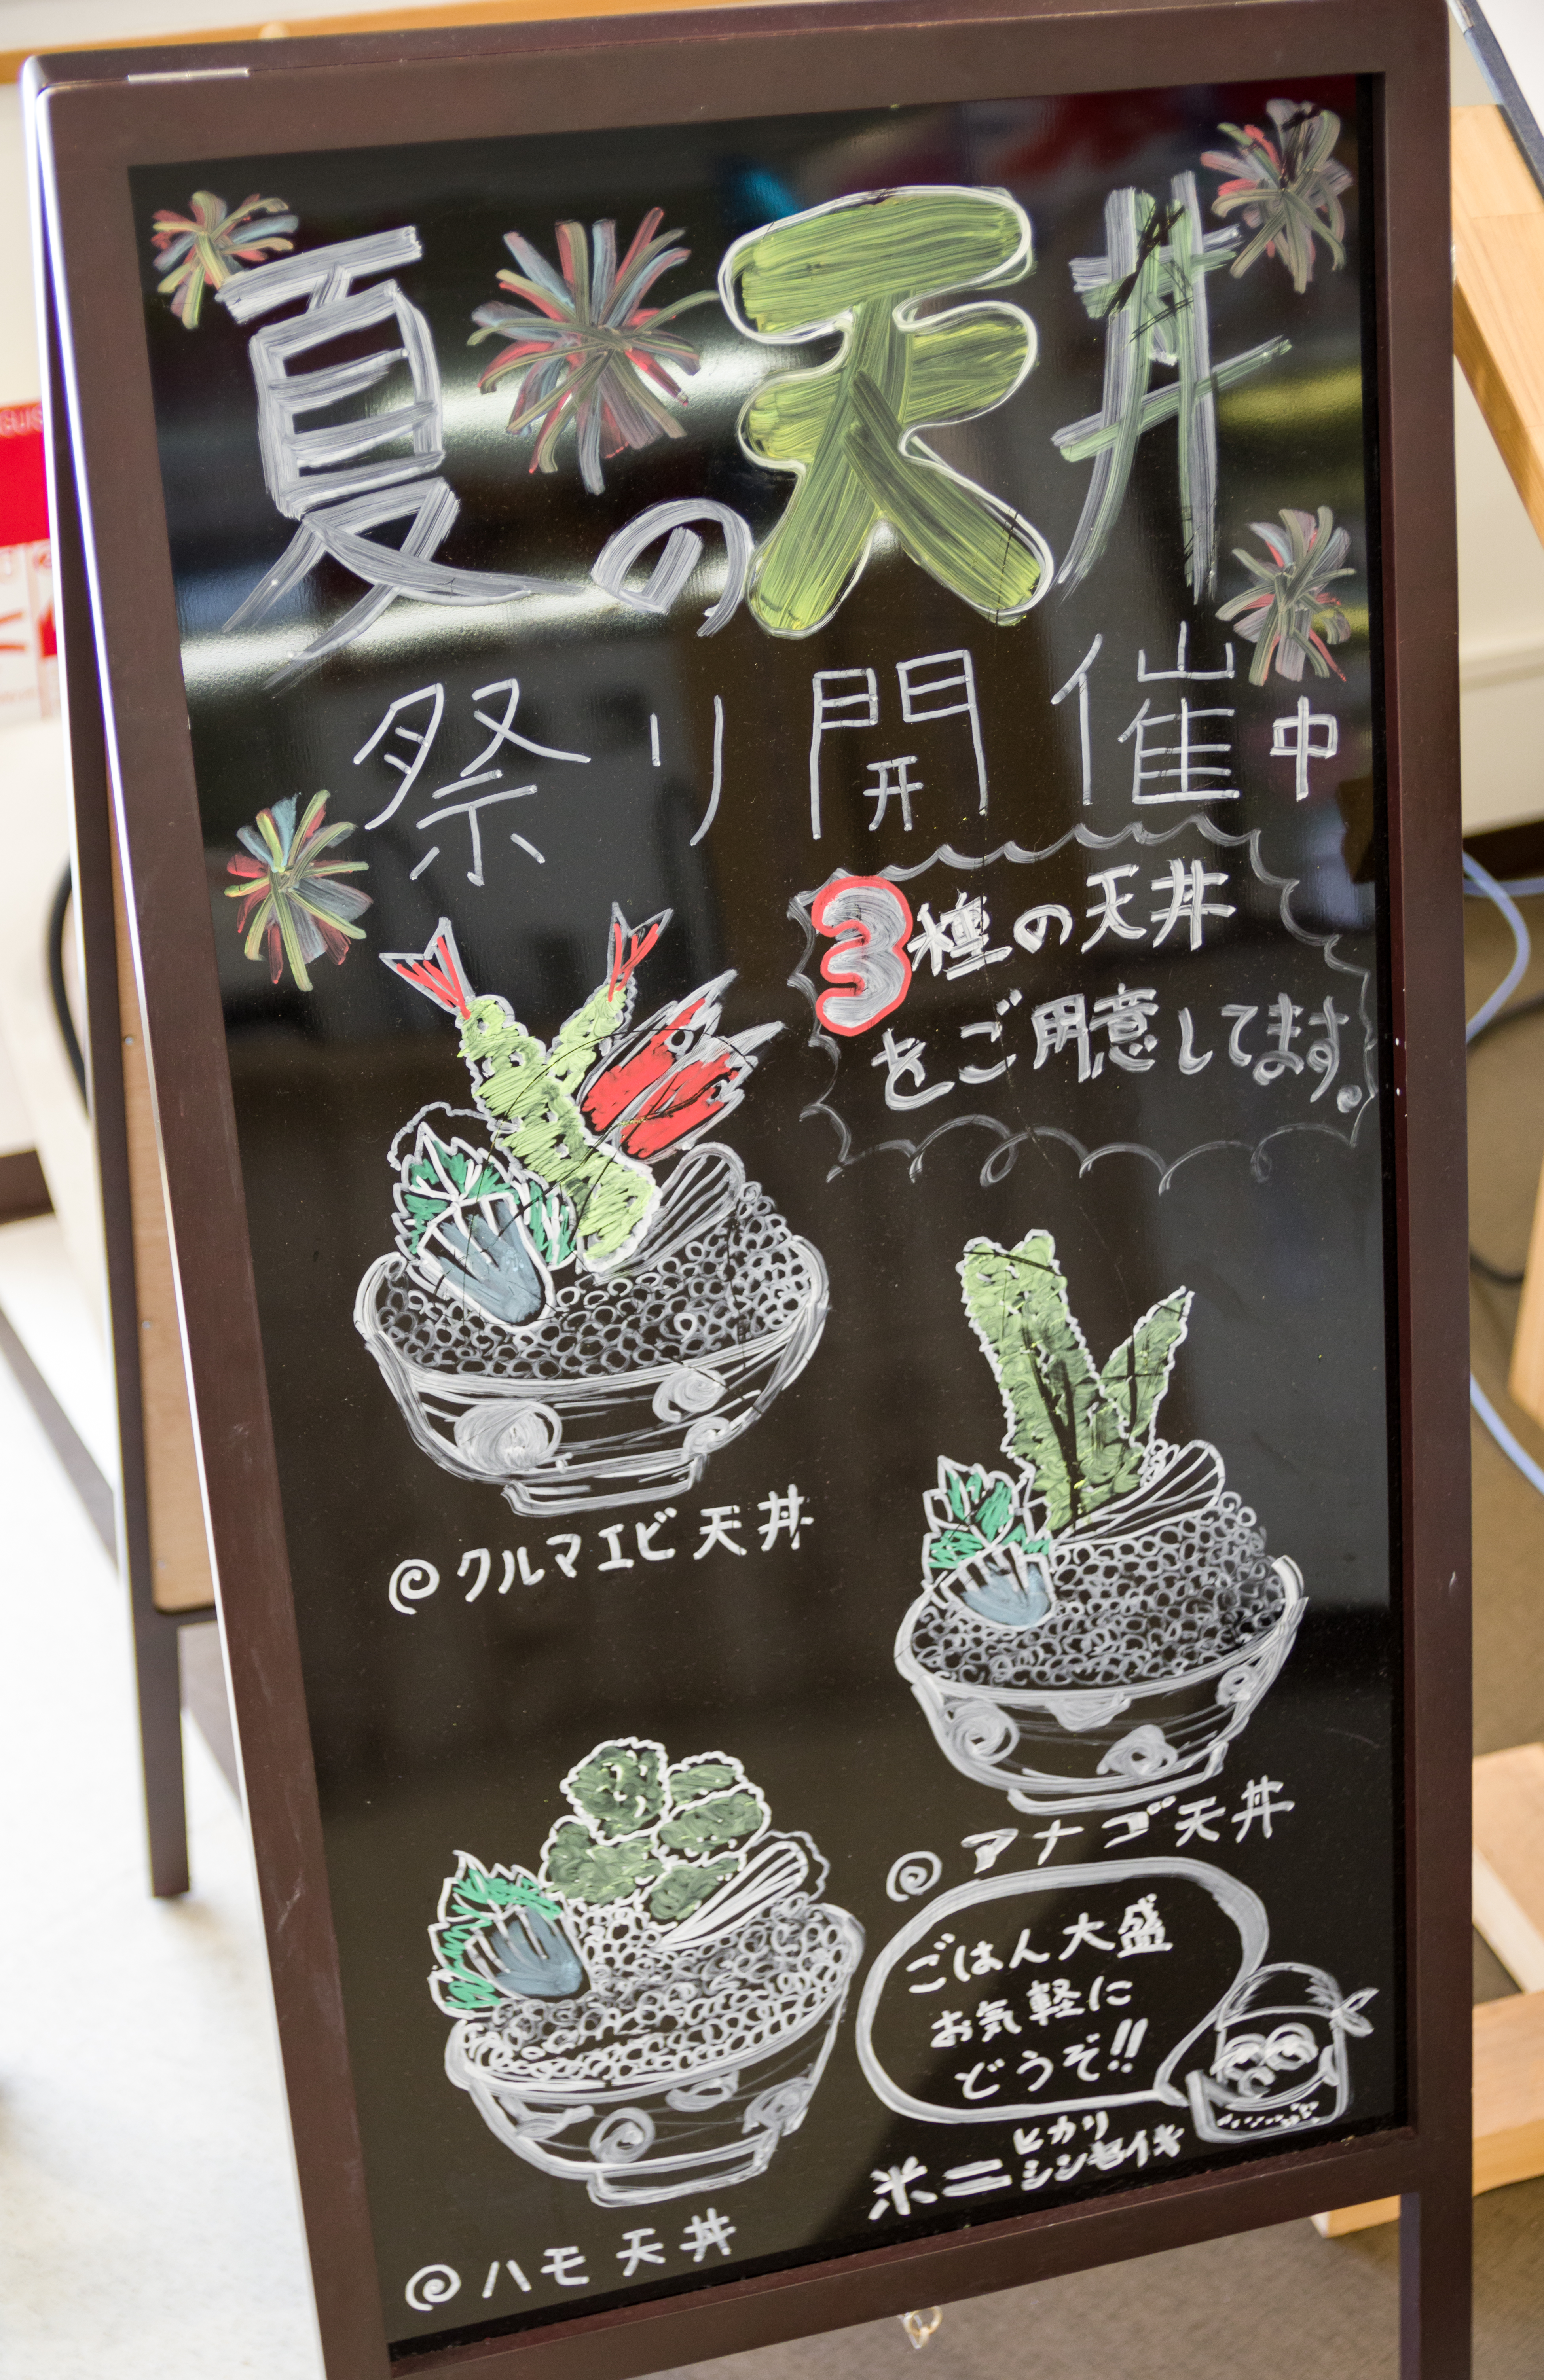 夏の天丼
祭り開催中
3種の天丼
をご用意してます。
@クルマエビ天丼
@アナゴ天丼
ごはん大盛
お気軽に
どうぞ!!
米=ヒカリ
シンセイキ
@ハモ天丼